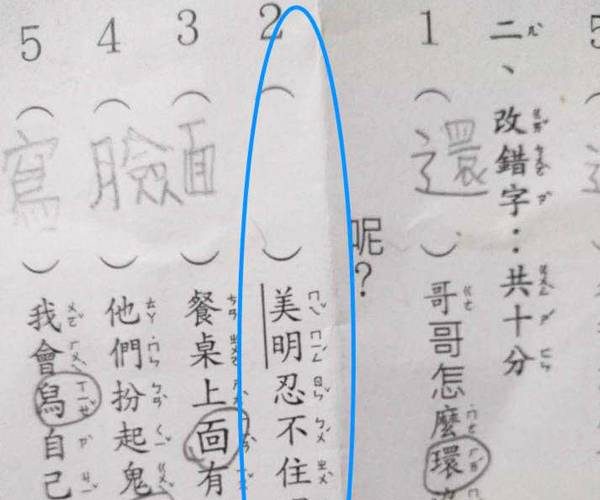 5
二、改錯字：共十分
1（還）哥哥怎麼環
呢？
2（　）美明忍不住
3（面）餐桌上靣有
4（臉）他們扮起鬼
5（寫）我會舄自己